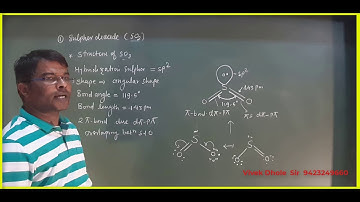 ① Sulphur dioxide (SO₂)
* Structure of SO₂
Hybridization Sulphur = SP²
Shape = angular shape
Bond angle = 119.5°
Bond length = 143 pm
2 π-bond due dπ-Pπ
overlaping betn S&O
SP²
S
143 pm
O 119.5° O
π-bond dπ-Pπ
dπ-Pπ
S ↔ S
O O O O
Vivek Dhote Sir